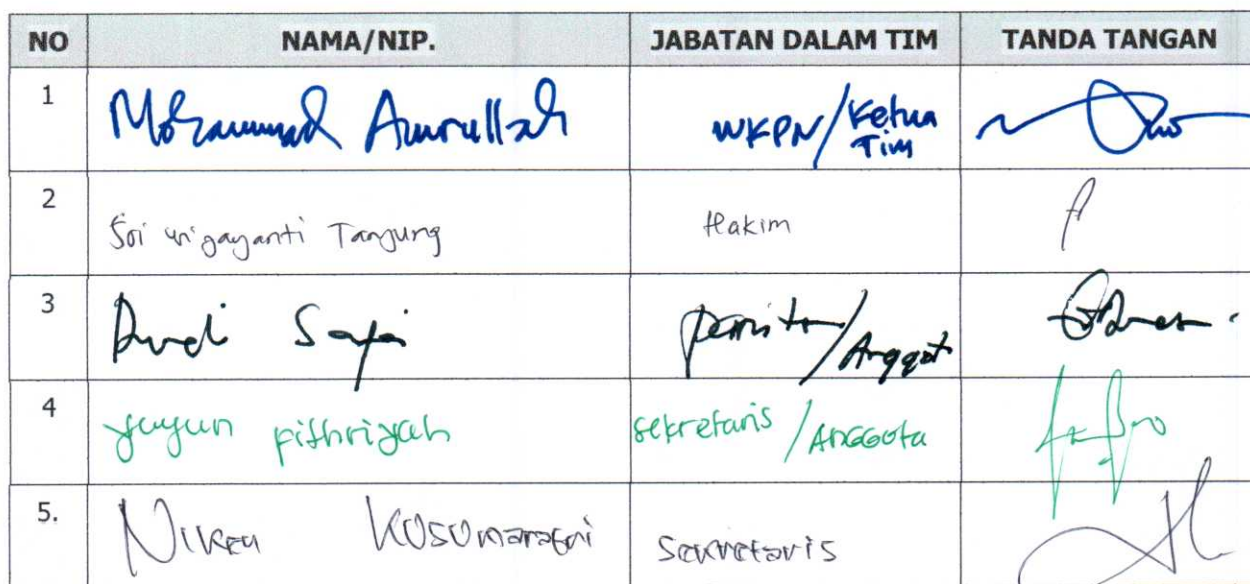 NO NAMA/NIP. JABATAN DALAM TIM TANDA TANGAN
1 Mohammad Amrullah WKPN/Ketua Tim
2 Sri Wijayanti Tanjung Hakim
3 Panitera/Anggota
4 Yuyun Fithriyah Sekretaris/Anggota
5. Niken Kusumaratri Sekretaris